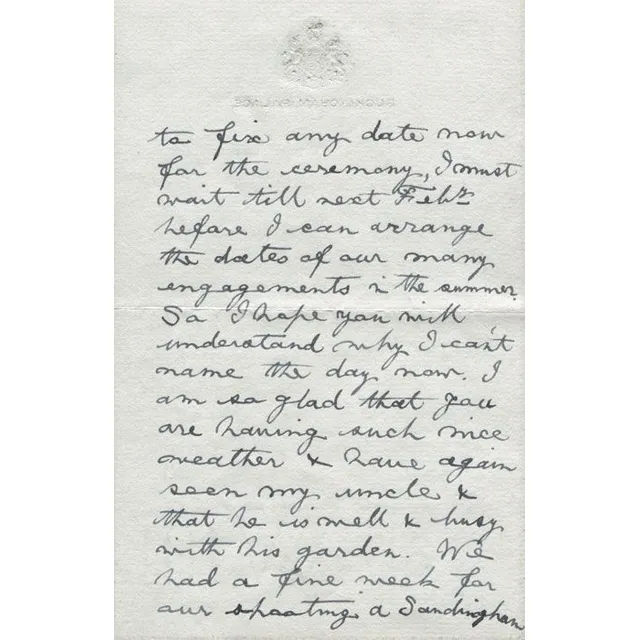 to fix any date now
for the ceremony, I must
wait till next Febr.
before I can arrange
the dates of our many
engagements in the summer.
So I hope you will
understand why I can't
name the day now. I
am so glad that you
are having such nice
weather & have again
seen my uncle &
that he is well & busy
with his garden. We
had a fine week for
our shooting a Sandringham